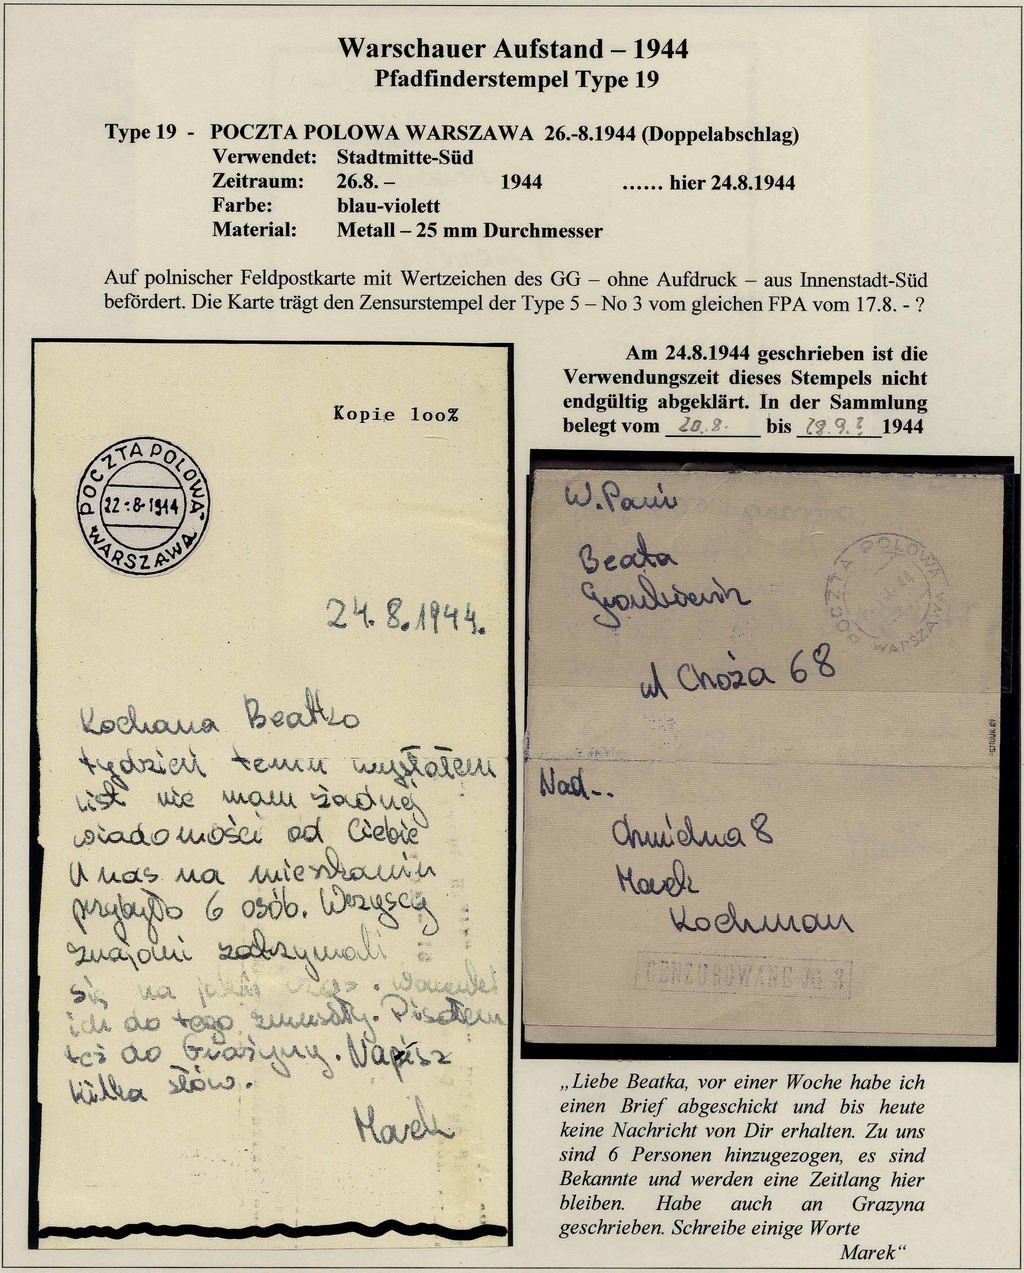 Warschauer Aufstand – 1944
Pfadfinderstempel Type 19
Type 19 - POCZTA POLOWA WARSZAWA 26.-8.1944 (Doppelabschlag)
Verwendet: Stadtmitte-Süd
Zeitraum: 26.8. – 1944 ...... hier 24.8.1944
Farbe: blau-violett
Material: Metall – 25 mm Durchmesser
Auf polnischer Feldpostkarte mit Wertzeichen des GG – ohne Aufdruck – aus Innenstadt-Süd
befördert. Die Karte trägt den Zensurstempel der Type 5 – No 3 vom gleichen FPA vom 17.8. - ?
Kopie 1oo%
POCZTA POLOWA
22-8-1944
WARSZAWA
24.8.1944.
Kochana Beatko
tydzień temu wysłałem
list nie mam żadnej
wiadomości od Ciebie
U nas na mieszkaniu
przybyło 6 osób. Wszyscy
znajomi zatrzymali
się na jakiś czas.
ich do tego zmusiły. Pisałem
też do Grażyny. Napisz
kilka słów.
Marek
Am 24.8.1944 geschrieben ist die
Verwendungszeit dieses Stempels nicht
endgültig abgeklärt. In der Sammlung
belegt vom 20.8. bis 28.9.? 1944
W. Pani
Beata
ul Choża 68
POCZTA POLOWA
WARSZAWA
Nad--
Chmielna 8
Marek
Kochman
CENZUROWANO № 3
„Liebe Beatka, vor einer Woche habe ich
einen Brief abgeschickt und bis heute
keine Nachricht von Dir erhalten. Zu uns
sind 6 Personen hinzugezogen, es sind
Bekannte und werden eine Zeitlang hier
bleiben. Habe auch an Grazyna
geschrieben. Schreibe einige Worte
Marek“